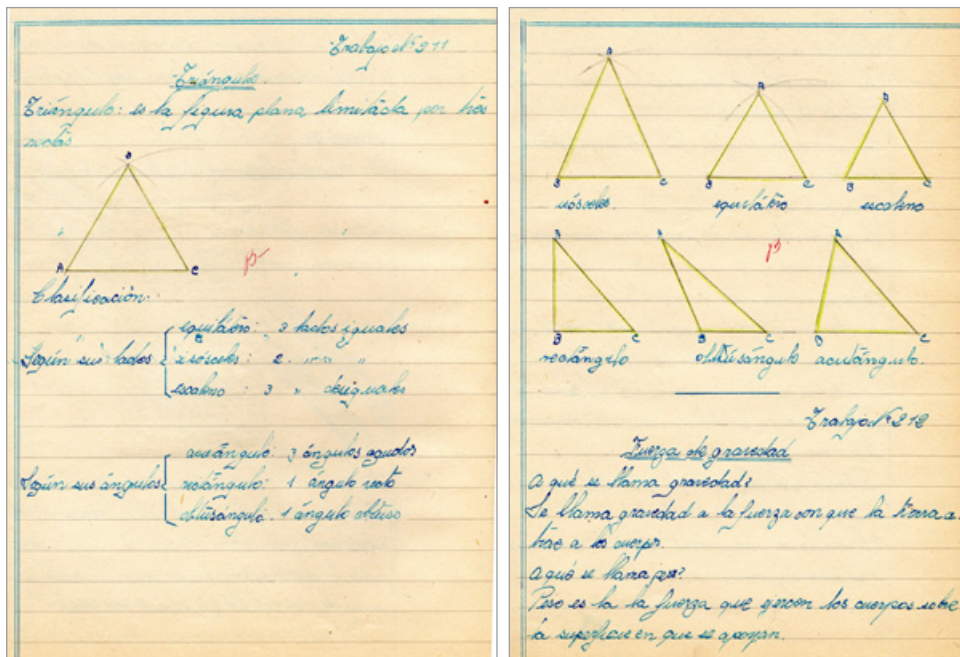 Trabajo Nº 211
Triángulo
Triángulo: es la figura plana limitada por tres
rectas
B
A C
Clasificación.
Según sus lados
equilátero: 3 lados iguales
isósceles: 2 " "
escaleno: 3 " desiguales
Según sus ángulos
acutángulo: 3 ángulos agudos
rectángulo: 1 ángulo recto
obtusángulo: 1 ángulo obtuso
A A A
B C B C B C
isósceles equilátero escaleno
A A A
B C B C B C
rectángulo obtusángulo acutángulo.
Trabajo Nº 212
Fuerza de gravedad
A qué se llama gravedad?
Se llama gravedad a la fuerza con que la tierra a-
trae a los cuerpos.
A qué se llama peso?
Peso es la la fuerza que ejercen los cuerpos sobre
la superficie en que se apoyan.